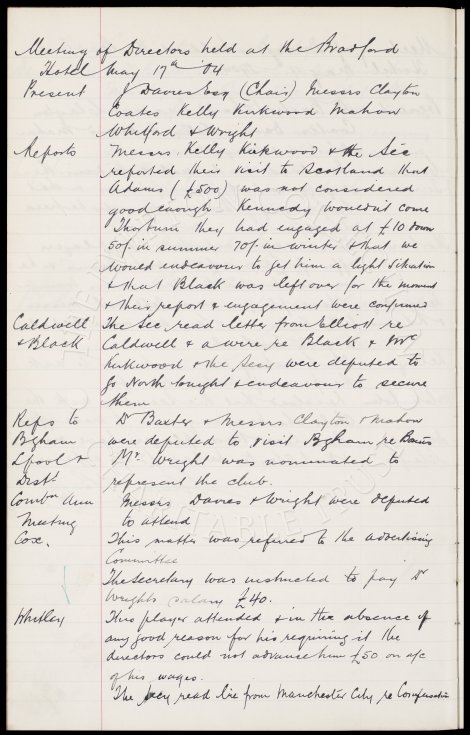 Meeting of Directors held at the Bradford
Hotel May 17th '04
Present J Davies Esq (Chair) Messrs Clayton
Coates Kelly Kirkwood Mahon
Whitford & Wright
Reports Messrs. Kelly Kirkwood & the Sec
reported their visit to Scotland that
Adams (£500) was not considered
good enough Kennedy wouldn't come
Thorburn they had engaged at £10 down
50/- in summer 70/- in winter & that we
would endeavour to get him a light situation
& that Black was left over for the moment
& their report & engagement were confirmed
Caldwell The Sec read letter from Elliott re
& Black Caldwell & a wire re Black &
Kirkwood & the Secy were deputed to
go North tonight & endeavour to secure
them
Reps to Dr Baxter & Messrs Clayton & Mahon
Bgham were deputed to visit Bgham re
Lpool & Mr Wright was nominated to
Dist represent the club.
Combn Ann Messrs Davies & Wright were deputed
Meeting to attend
Cox. This matter was referred to the advertising
Committee
The Secretary was instructed to pay Dr
Wrights salary £40.
Whitley This player attended & in the absence of
any good reason for his requiring it the
directors could not advance him £50 on a/c
of his wages.
The Secy read from Manchester City re Compensation